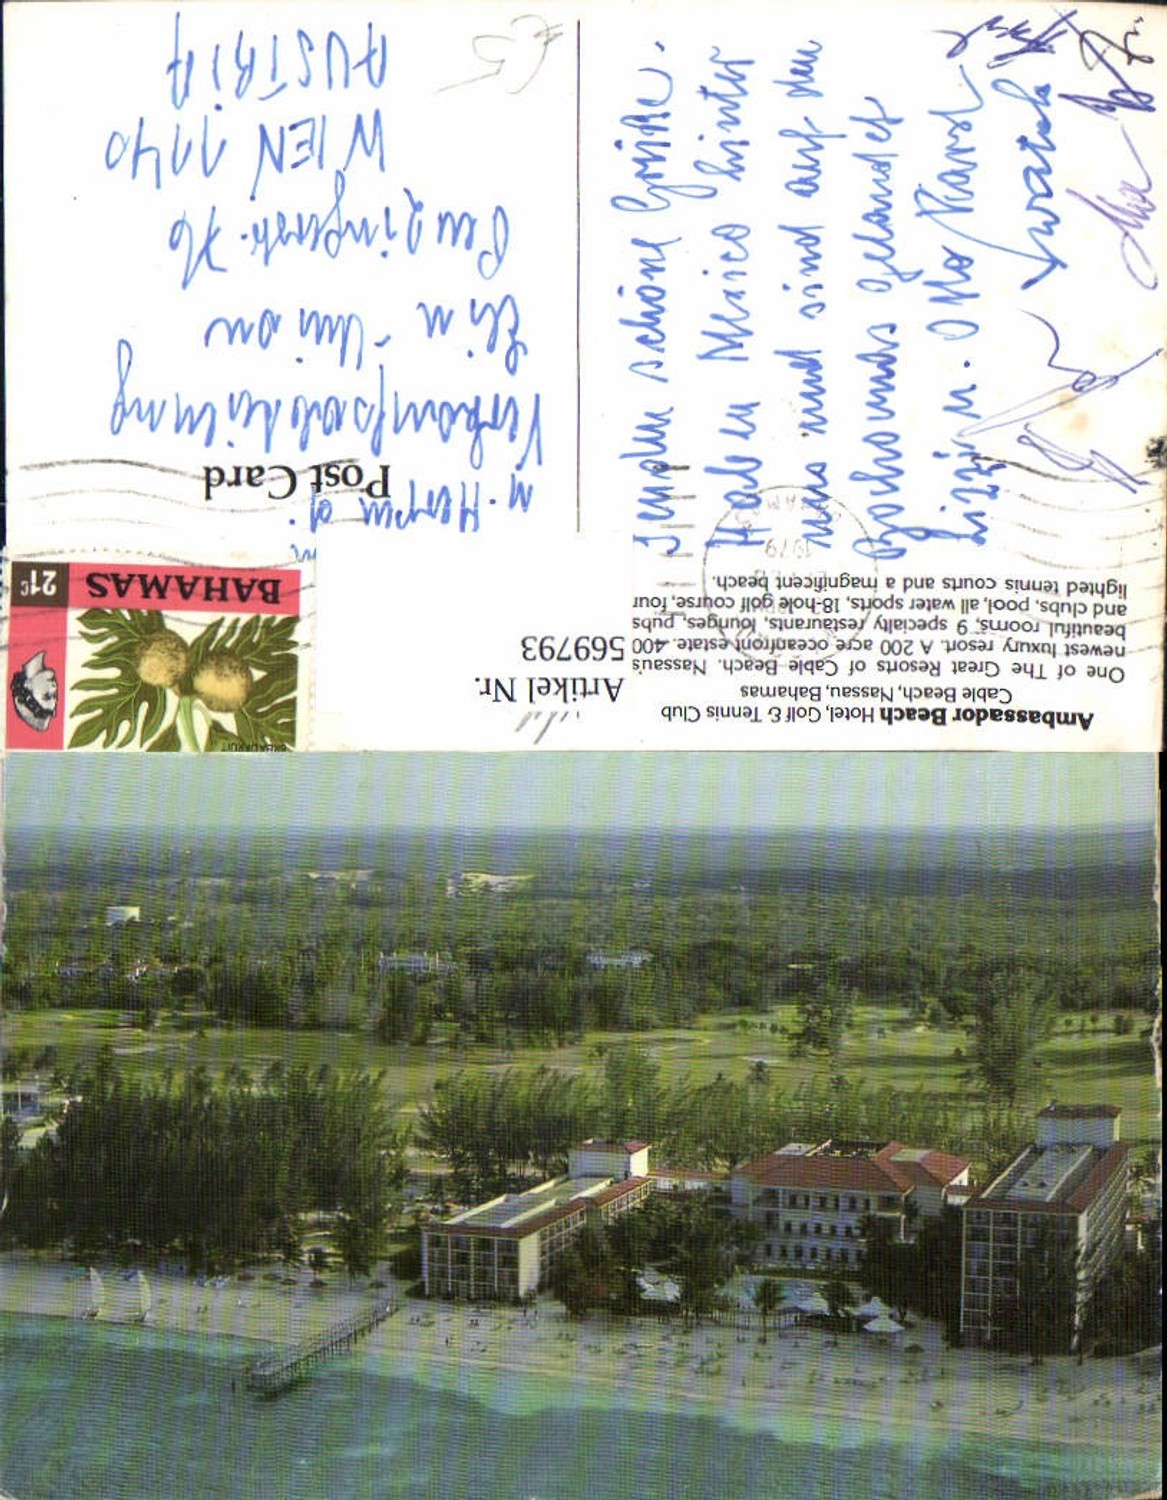 Ambassador Beach Hotel, Golf & Tennis Club
Cable Beach, Nassau, Bahamas
One of The Great Resorts of Cable Beach. Nassau's
newest luxury resort. A 200 acre oceanfront estate. 400
beautiful rooms, 9 specialty restaurants, lounges, pubs
and clubs, pool, all water sports, 18-hole golf course, four
lighted tennis courts and a magnificent beach.
Artikel Nr.
569793
BREADFRUIT
BAHAMAS 21c
Post Card
1979
BAHAMAS
Senden schöne Grüße.
Haben Mexico hinter
uns und sind auf den
Bahamas gelandet
Verkaufsabteilung
Elin-Union
Penzingerstr. 76
WIEN 1140
AUSTRIA